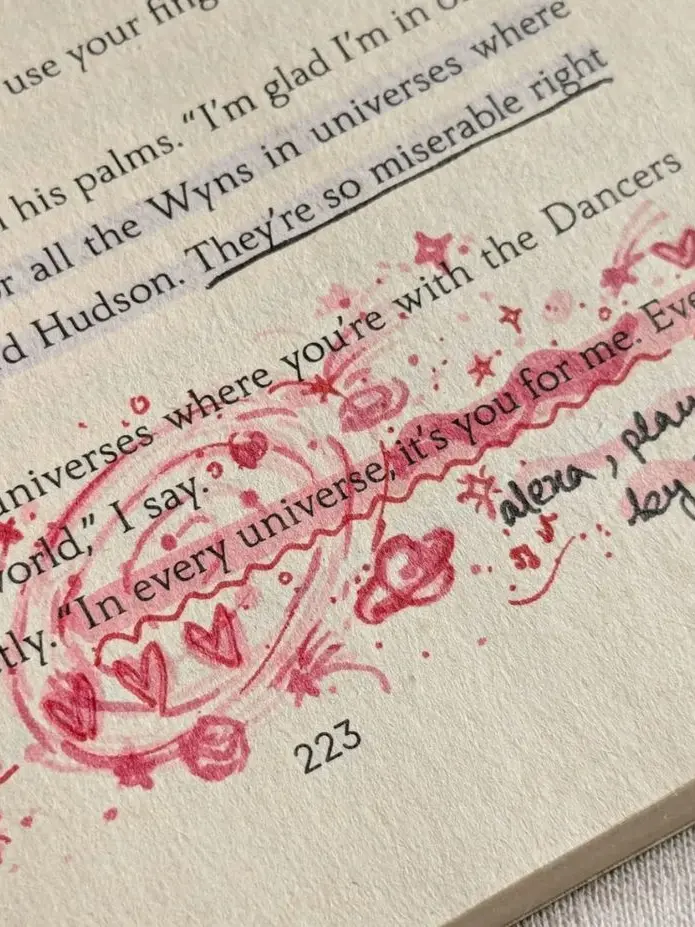 use your
his palms. “I’m glad I’m in
all the Wyns in universes where
Hudson. They’re so miserable right
universes where you’re with the Dancers
world,” I say.
“In every universe, it’s you for me.
alexa, play
223